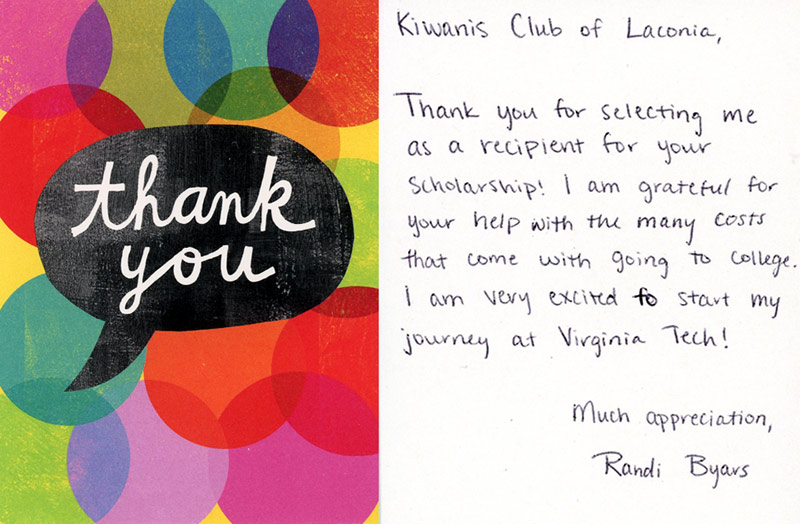 thank
you
Kiwanis Club of Laconia,
Thank you for selecting me
as a recipient for your
scholarship! I am grateful for
your help with the many costs
that come with going to college.
I am very excited to start my
journey at Virginia Tech!
Much appreciation,
Randi Byars